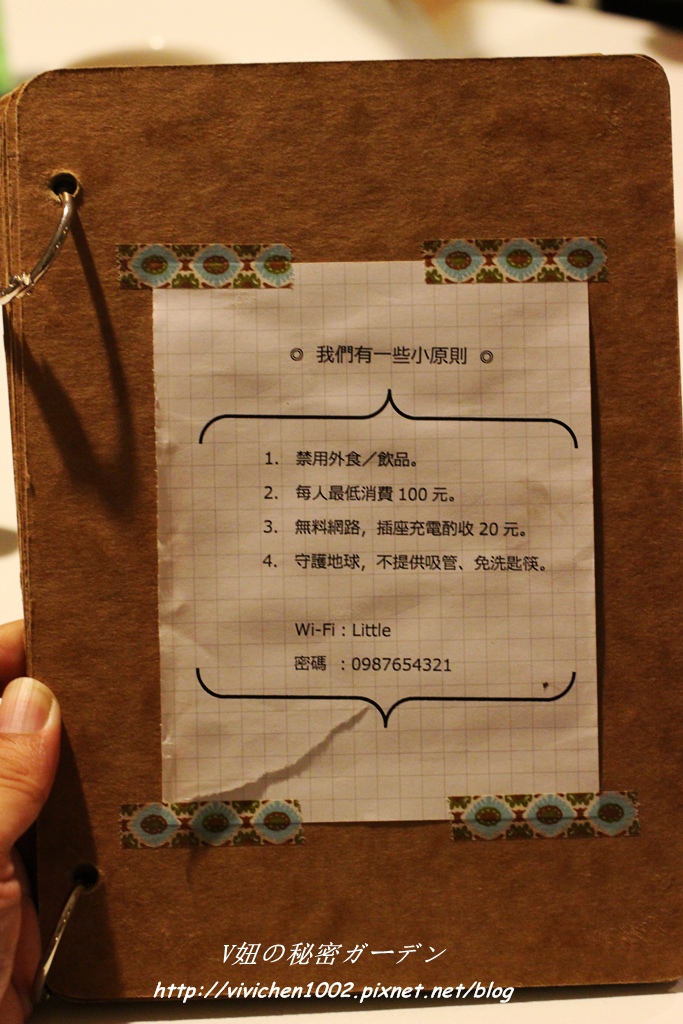 ◎ 我們有一些小原則 ◎
1. 禁用外食／飲品。
2. 每人最低消費 100 元。
3. 無料網路，插座充電酌收 20 元。
4. 守護地球，不提供吸管、免洗匙筷。
Wi-Fi : Little
密碼 : 0987654321
V妞の秘密ガーデン
http://vivichen1002.pixnet.net/blog